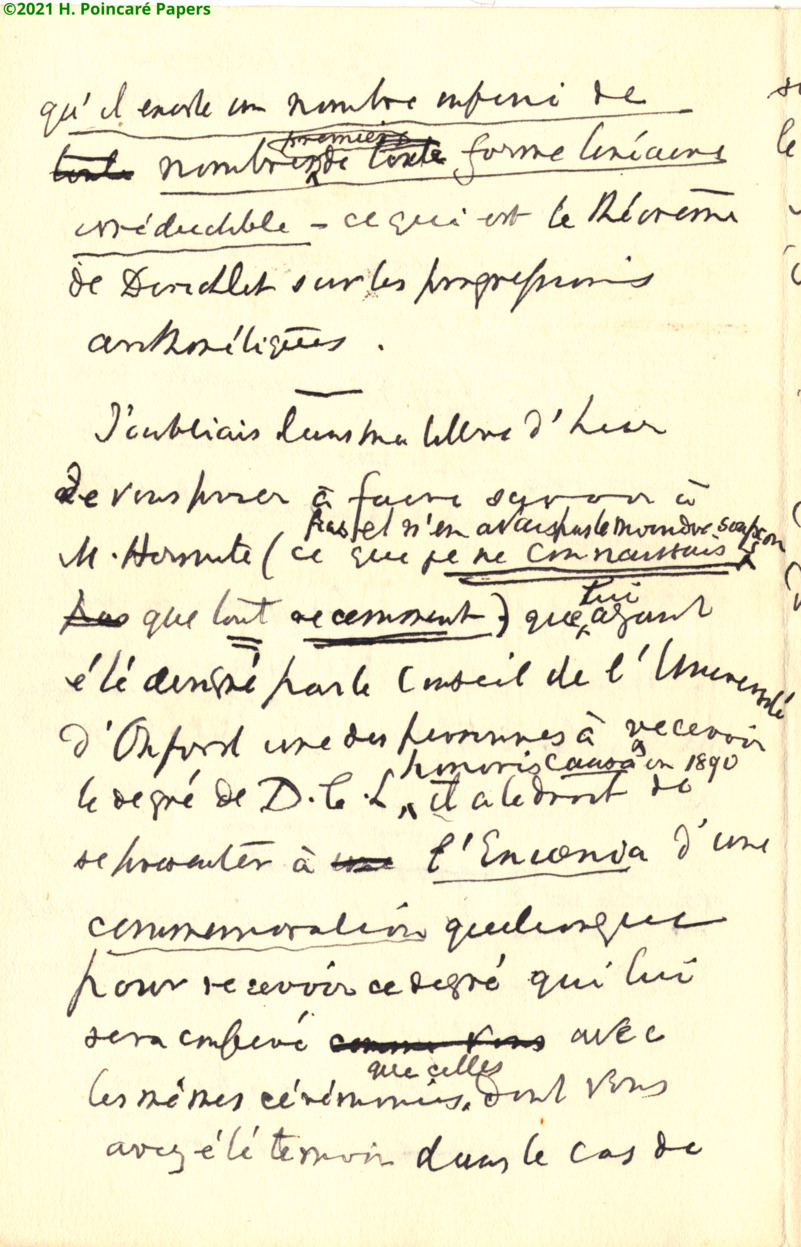 ©2021 H. Poincaré Papers
qu'il existe un nombre infini de
toute nombres premiers de toute forme linéaire
irréductible – ce qui est le Théorème
de Dirichlet sur les progressions
arithmétiques.
J'oubliais dans ma lettre d'hier
de vous prier à faire savoir à
M. Hermite (ce que je ne connaissais
pas et n'en avais pas le moindre soupçon
pas que tout recemment) que, lui ayant
été designé par le Conseil de l'Université
d'Oxford une des personnes à recevoir
le degré de D.C.L honoris causa en 1890
il a le droit de
se presenter à une l'Encœnia d'une
commemoration quelconque
pour recevoir ce degré qui lui
sera conferé comme vous avec
les mêmes cérémonies que celles dont vous
avez été temoin dans le cas de